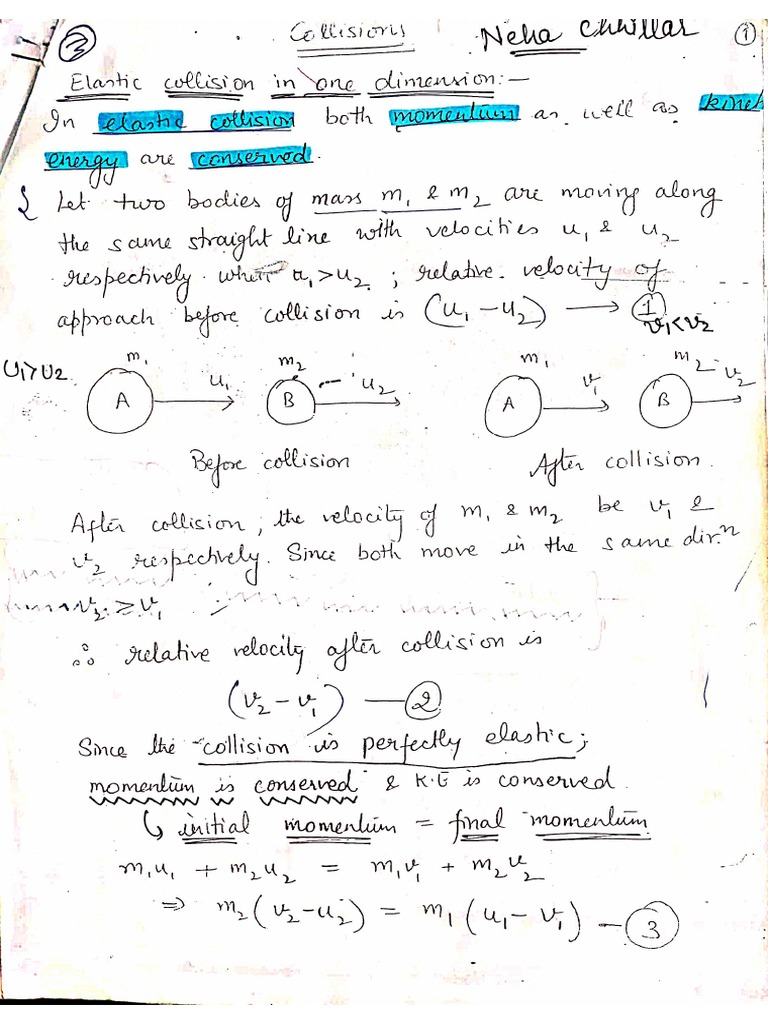 ③ Collisions Neha Chhillar ①
Elastic collision in one dimension:-
In elastic collision both momentum as well as kinet
energy are conserved.
Let two bodies of mass m₁ & m₂ are moving along
the same straight line with velocities u₁ & u₂
respectively when u₁>u₂ ; relative velocity of
approach before collision is (u₁-u₂) → ①
v₁<v₂
m₁ m₂ m₁ m₂ v₂
U₁>U₂ A u₁ B u₂ A v₁ B
Before collision After collision.
After collision, the velocity of m₁ & m₂ be v₁ &
v₂ respectively. Since both move in the same dir.ⁿ
v₂ ≥ v₁
∴ relative velocity after collision is
(v₂-v₁) — ②
Since the collision is perfectly elastic;
momentum is conserved & K.E is conserved.
↳ initial momentum = final momentum
m₁u₁ + m₂u₂ = m₁v₁ + m₂v₂
⇒ m₂(v₂-u₂) = m₁(u₁-v₁) - ③